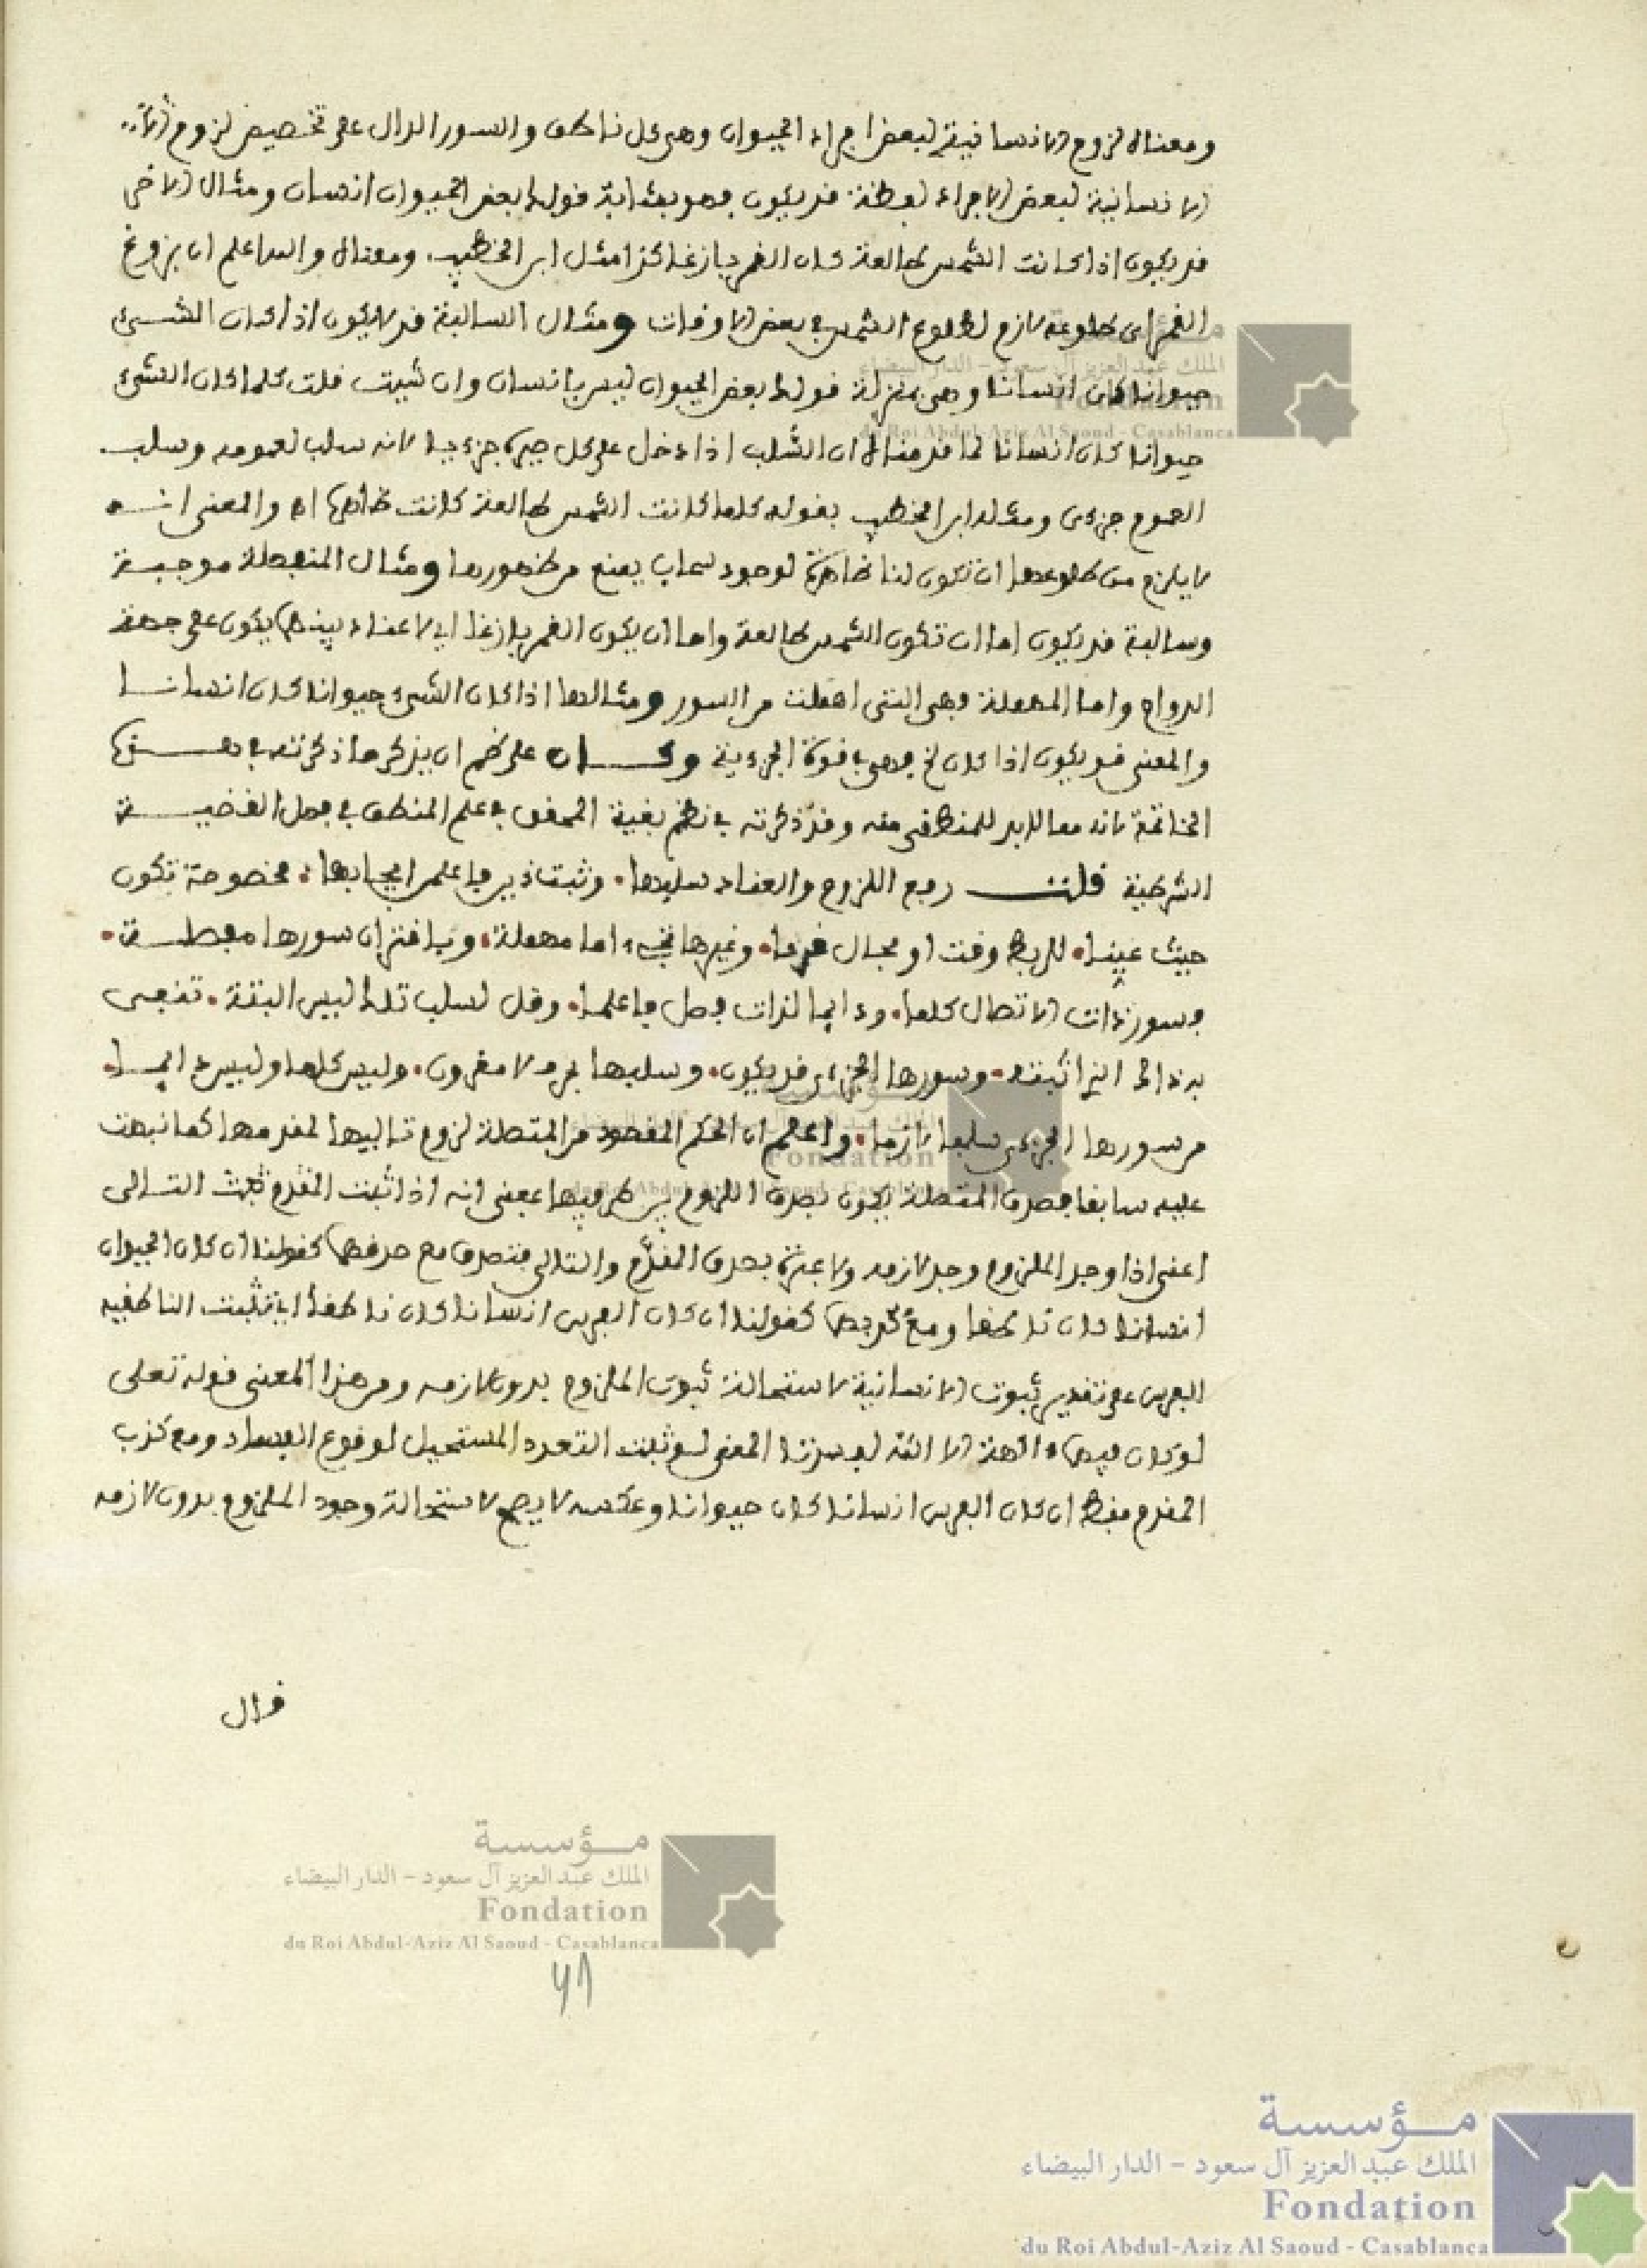 ومعناه لزوم الانسانية لبعض افراد الحيوان وهى كل ناطق والسور الدال على تخصيص لزوم
الانسانية لبعض الافراد لفظة قد يكون فهو بمثابة قولك بعض الحيوان انسان ومثال الاخرى
قد يكون اذا كانت الشمس طالعة كان القمر بازغا كذا مثل ابن الخطيب ومعناه والله اعلم ان بزوغ
القمر اى طلوعه لازم لطلوع الشمس في بعض الاوقات ومثال السالبة قد لا يكون اذا كان الشىء
حيوانا كان انسانا وهى بمنزلة قولك بعض الحيوان ليس بانسان وان شيت قلت كلما كان الشىء
حيوانا كان انسانا لما قدمناه ان السلب اذا دخل على كل صيره جزءيا لانه سلب لعمومه وسلب
العموم جزءى ومثله ابن الخطيب بقوله كلما كانت الشمس طالعة كانت ظاهرة اه والمعنى انه
لا يلزم من طلوعها ان تكون لنا ظاهرة لوجود سحاب يمنع من ظهورها ومثال المنفصلة موجبة
وسالبة قد يكون اما ان تكون الشمس طالعة واما ان يكون القمر بازغا اى لا عناد بينهما يكون على جهة
الدوام واما المهملة فهى التى اهملت من السور ومثالها اذا كان الشىء حيوانا كان انسانا
والمعنى قد يكون اذا كان الخ فهى في قوة الجزءية وكان على ظم ان يذكر ما ذكرته في هذه
الخاتمة لانه مما لابد للمنطقى منه وقد ذكرته في نظم بغية المحقق في علم المنطق في فصل القضية
الشرطية قلت رفع اللزوم والعناد سلبها وثبت ذين فاعلمن ايجابها مخصوصة تكون
حيث عينا للربط وقت او بحال قرنا وغيرها تجىء اما مهملة وباقتران سورها مفصلة
فسور ذات الاتصال كلما ودايما لذات فصل فاعلما وقل لسلب تلك ليس البتة تنفى
بذاك الذى اثبته وسورها الجزءى قد يكون وسلبها بحرف لا مقرون وليس كلما وليس دايما
من سورها الجزءى سلبا لازما واعلم ان الحكم المقصود من المتصلة لزوم تاليها لمقدمها كما نبهت
عليه سابقا فصدق المتصلة يكون بصدق اللزوم بين طرفيها بمعنى انه اذا ثبت المقدم ثبت التالى
اعنى اذا وجد الملزوم وجد لازمه ولا عبرة بصدق المقدم والتالى فتصدق مع صدقهما كقولنا ان كان الحيوان
انسانا كان ناطقا ومع كذبهما كقولنا ان كان الفرس انسانا كان ناطقا اى تثبت الناطقية
للفرس على تقدير ثبوت الانسانية لاستحالة ثبوت الملزوم بدون لازمه ومن هذا المعنى قوله تعلى
لو كان فيهما ءالهة الا الله لفسدتا المعنى لو ثبت التعدد المستحيل لوقوع الفساد ومع كذب
المقدم فقط ان كان الفرس انسانا كان حيوانا وعكسه لا يصح لاستحالة وجود الملزوم بدون لازمه
قال
مؤسسة
الملك عبد العزيز آل سعود - الدار البيضاء
Fondation
du Roi Abdul-Aziz Al Saoud - Casablanca
مؤسسة
الملك عبد العزيز آل سعود - الدار البيضاء
Fondation
du Roi Abdul-Aziz Al Saoud - Casablanca